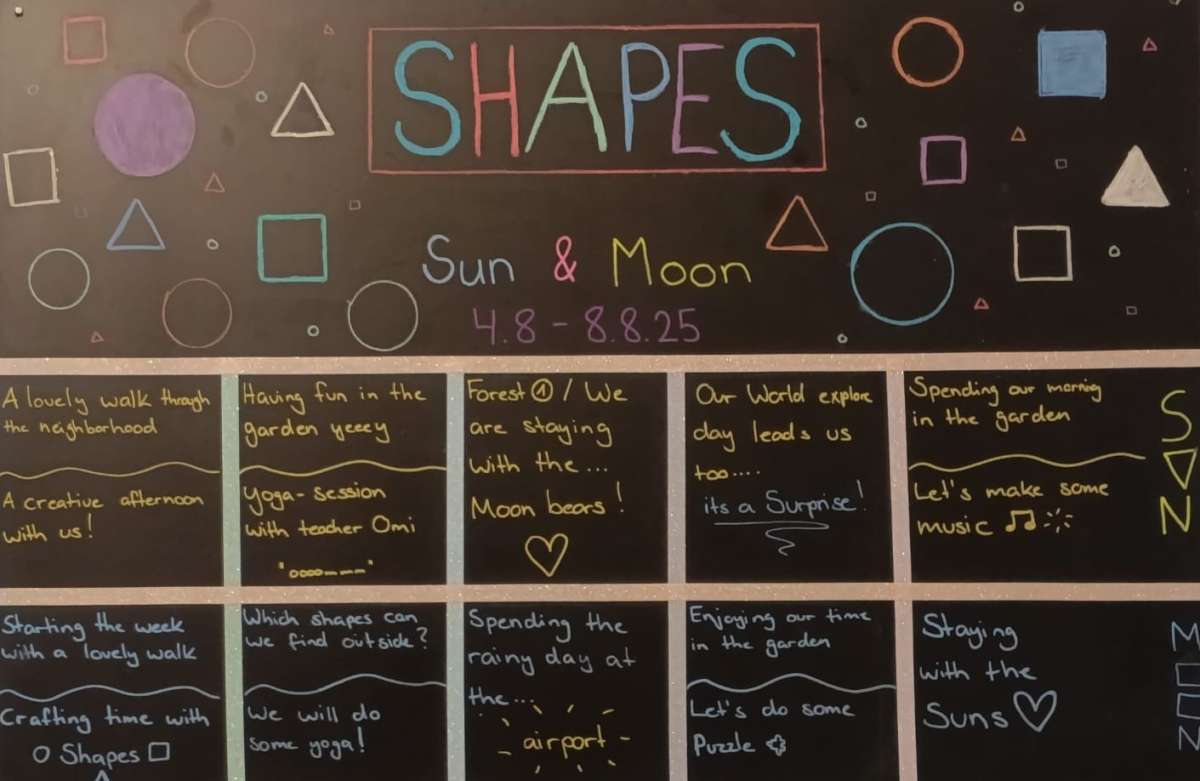 SHAPES
Sun & Moon
4.8 - 8.8.25
A lovely walk through
the neighborhood
A creative afternoon
with us!
Having fun in the
garden yeeey
Yoga-session
with teacher Omi
"oooo---"
Forest ① / We
are staying
with the...
Moon bears!
Our World explore
day leads us
too....
its a Surprise!
Spending our morning
in the garden
Let's make some
music
S
U
N
Starting the week
with a lovely walk
Crafting time with
Shapes
Which shapes can
we find outside?
We will do
some yoga!
Spending the
rainy day at
the...
airport
Enjoying our time
in the garden
Let's do some
Puzzle
Staying
with the
Suns
M
O
O
N